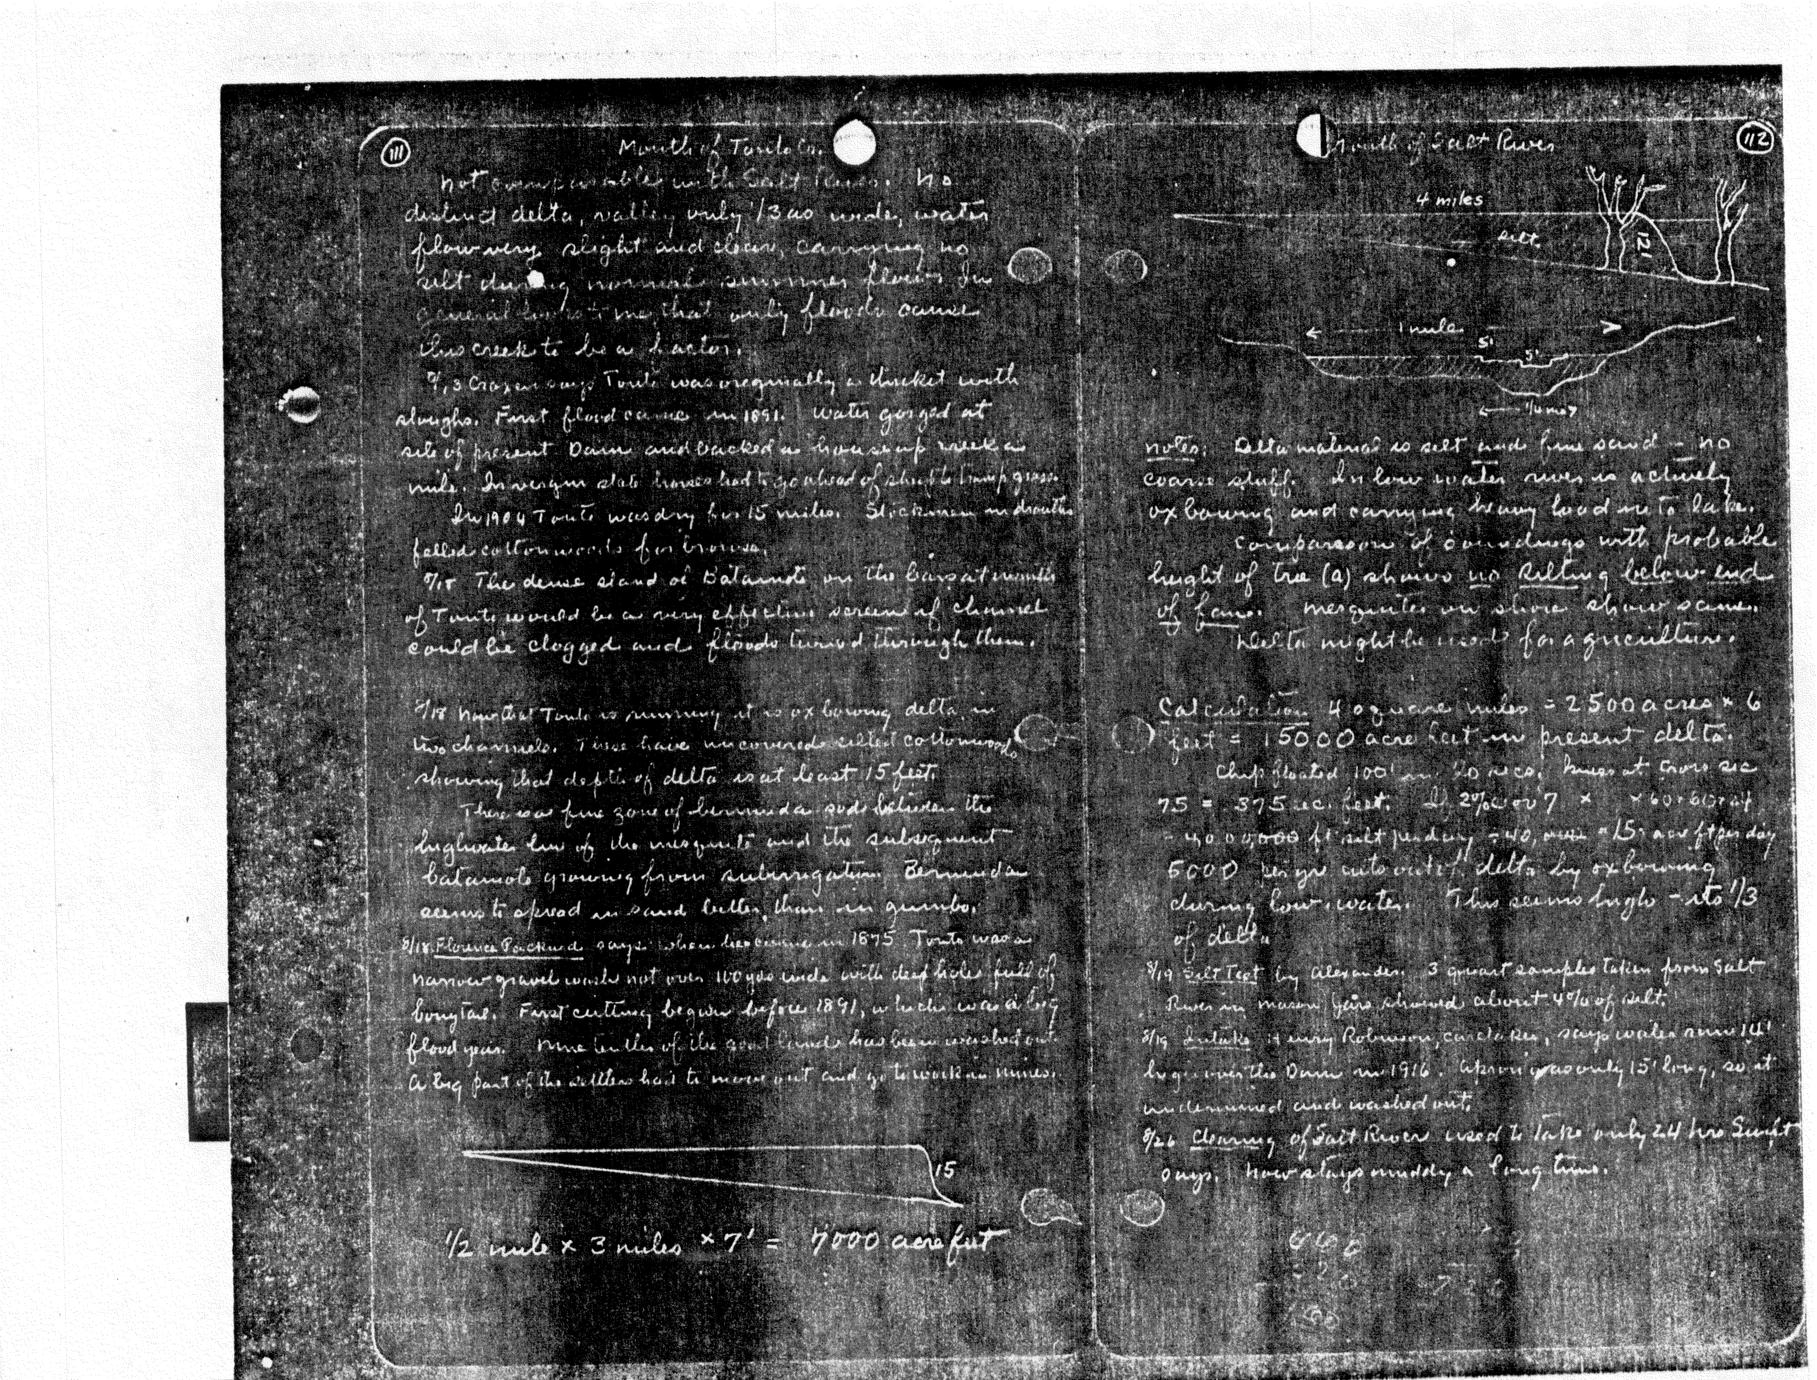 111
Mouth of Tonto Cr.
not comparable with Salt River. No
distinct delta, valley only 1/3 as wide, water
flow very slight and clear, carrying no
silt during normal summer flow. In
general looks to me that only floods cause
this creek to be a factor.
Crozen says Tonto was originally a thicket with
sloughs. First flood came in 1891. Water gorged at
site of present Dam and backed a house up creek a
mile. In virgin state horses had to go ahead of sheep to tramp grass.
In 1904 Tonto was dry for 15 miles. Stockmen in drouths
felled cottonwoods for browse.
8/18 The dense stand of Batamote on the bars at mouth
of Tonto would be a very effective screen if channel
could be clogged and floods turned through them.
8/18 Now that Tonto is running it is oxbowing delta in
two channels. These have uncovered silted cottonwoods
showing that depth of delta is at least 15 feet.
There is a fine zone of bermuda sod between the
highwater line of the mesquite and the subsequent
batamote growing from subirrigation. Bermuda
seems to spread in sand better than in gumbo.
8/18 Florence Packard says when he came in 1875 Tonto was a
narrow gravel wash not over 100 yds wide with deep holes full of
bonytail. First cutting began before 1891, which was a big
flood year. Nine tenths of the good land has been washed out.
A big part of the settlers had to move out and go to work in mines.
15
1/2 mile x 3 miles x 7' = 7000 acre feet
112
Mouth of Salt River
4 miles
silt
12'
1 mile
5'
5'
1/4 m
notes: Delta material is silt and fine sand - no
coarse stuff. In low water river is actively
oxbowing and carrying heavy load into lake.
Comparison of soundings with probable
height of tree (a) shows no silting below end
of fan. Mesquites on shore show same.
Delta might be used for agriculture.
Calculation 4 square miles = 2500 acres x 6
feet = 15000 acre feet in present delta.
Chip floated 100' in 20 secs. at cross sec
75 = 375 sec. feet. If 2% or 7 x x 60 x 60 x 24
ft silt per day = 15 acre ft per day
5000 per yr cuts out of delta by oxbowing
during low water. This seems high - its 1/3
of delta
8/19 Silt Test by Alexander. 3 quart samples taken from Salt
River in mason jars showed about 4% of silt.
8/19 Intake Henry Robinson, caretaker, says water runs 14'
over the Dam in 1916. Apron was only 15' long, so it
undermined and washed out.
8/26 Clearing of Salt River used to take only 24 hrs Swift
says. Now stays muddy a long time.